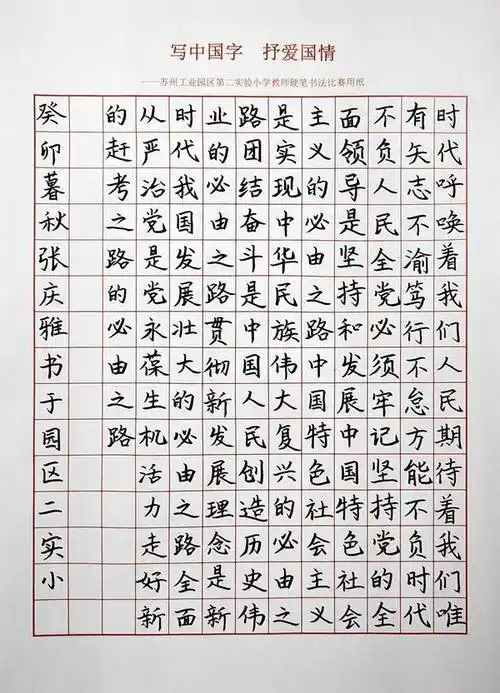 写中国字 抒爱国情
——苏州工业园区第二实验小学教师硬笔书法比赛用纸
时代呼唤着我们人民期待着我们唯
有矢志不渝笃行不怠方能不负时代
不负人民全党必须牢记坚持党的全
面领导是坚持和发展中国特色社会
主义的必由之路中国特色社会主义
是实现中华民族伟大复兴的必由之
路团结奋斗是中国人民创造历史伟
业的必由之路贯彻新发展理念是新
时代我国发展壮大的必由之路全面
从严治党是党永葆生机活力走好新
的赶考之路的必由之路
癸卯暮秋张庆雅书于园区二实小